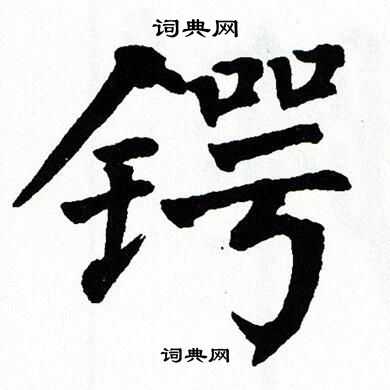 词典网
锷
词典网